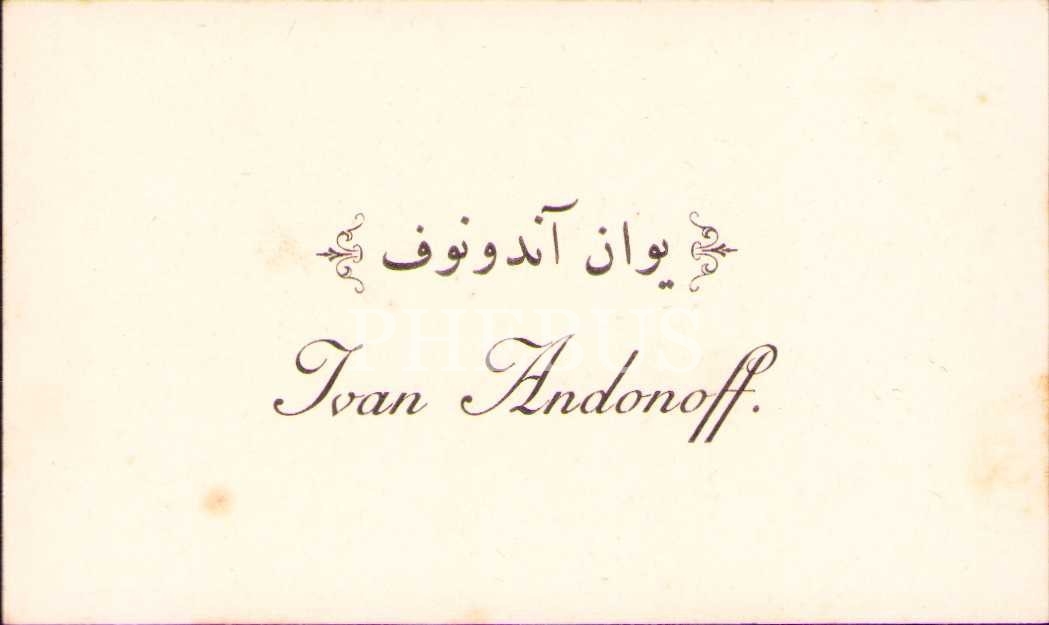 يوان آندونوف
PHEBUS
Ivan Andonoff.